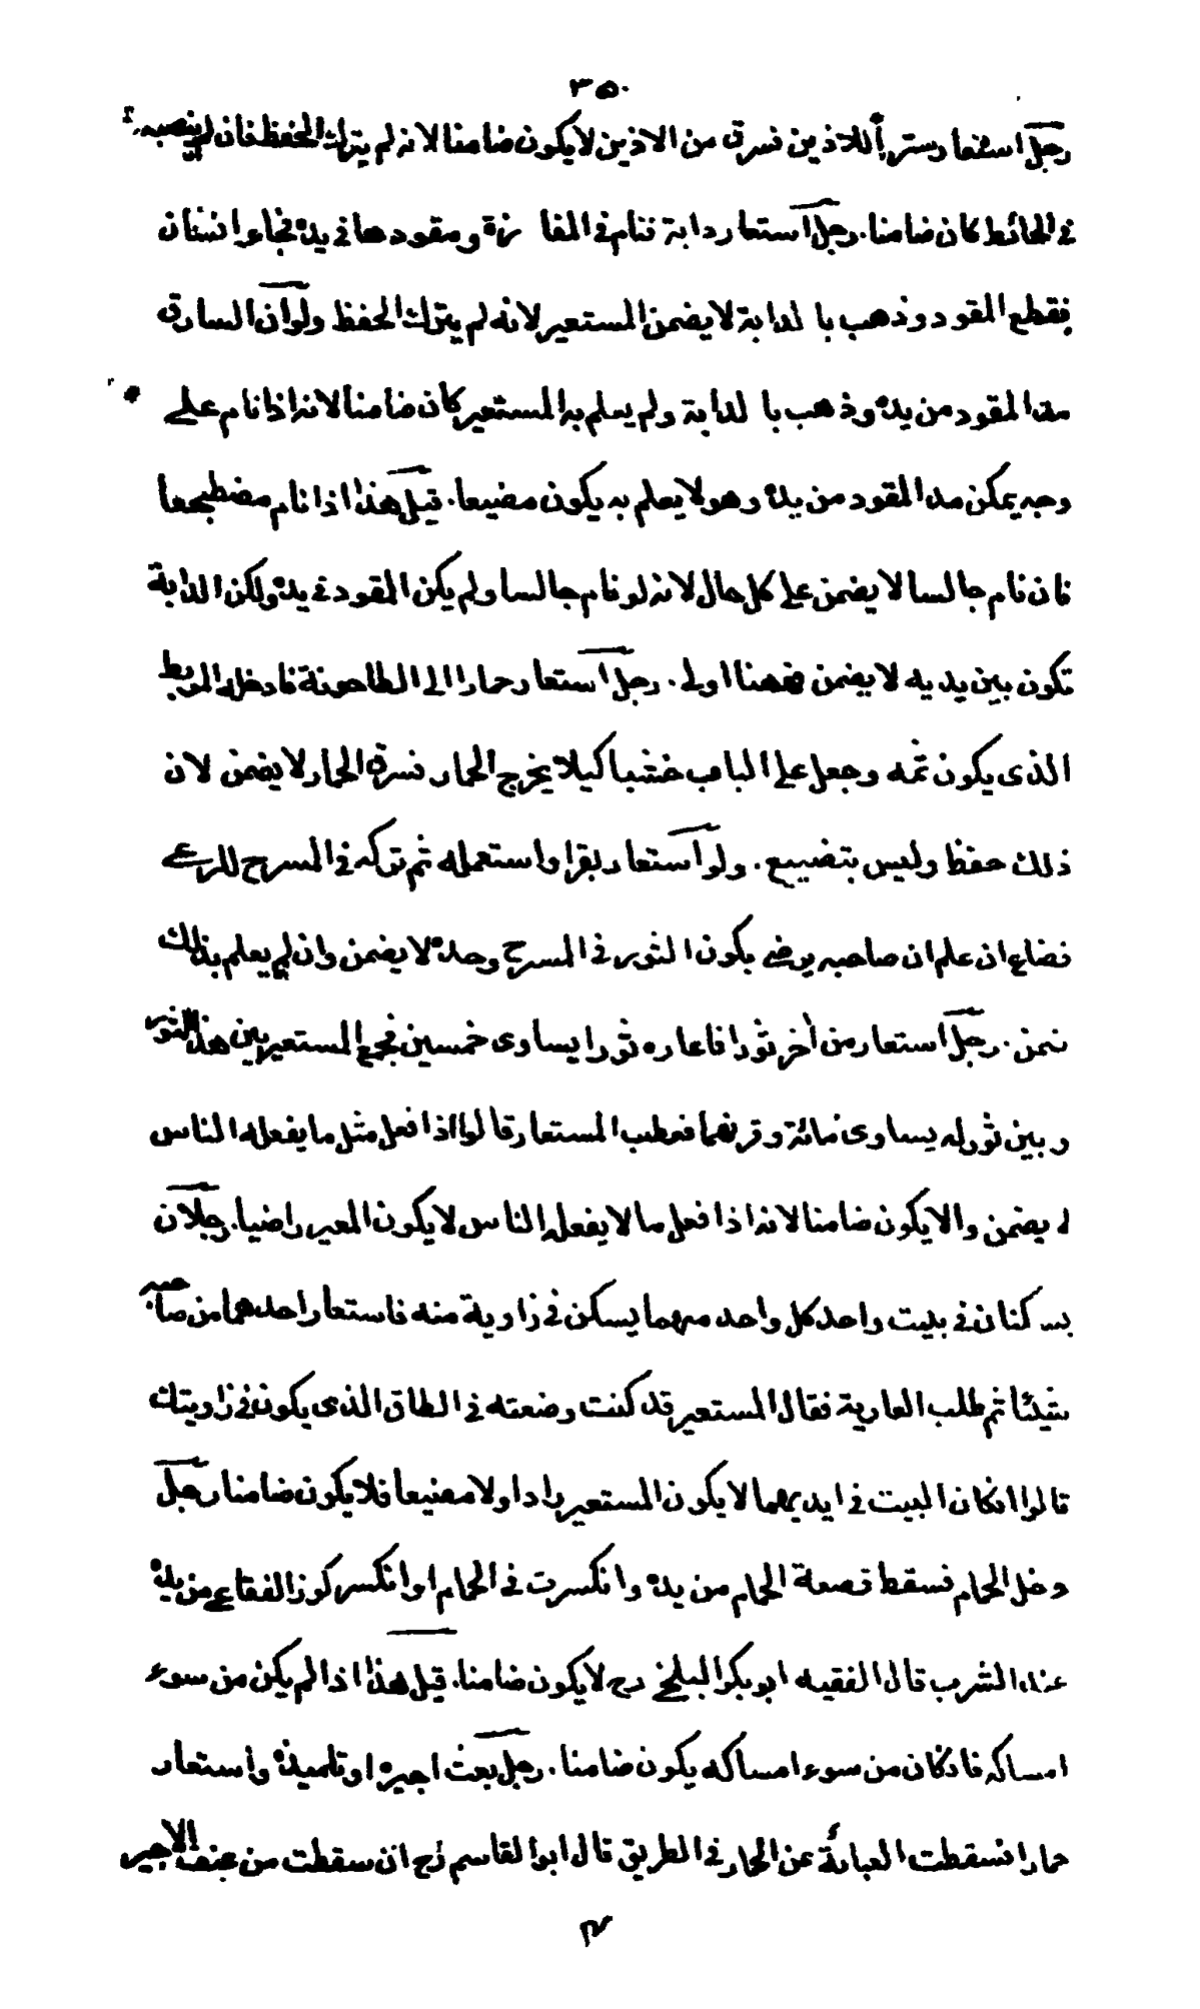 ٣٥٠
رجل استعار ستراً للاذين فسرق من الاذين لا يكون ضامنا لانه لم يترك الحفظ فان لم ينصبه
فى الحائط كان ضامنا. رجل استعار دابة فنام فى المفازة ومقودها فى يده فجاء انسان
فقطع المقود وذهب بالدابة لا يضمن المستعير لانه لم يترك الحفظ ولو ان السارق
مد المقود من يده وذهب بالدابة ولم يعلم به المستعير كان ضامنا لانه اذا نام على
وجه يمكن مد المقود من يده وهو لا يعلم به يكون مضيعا. قيل هذا اذا نام مضطجعا
فان نام جالسا لا يضمن على كل حال لانه لو نام جالسا ولم يكن المقود فى يده ولكن الدابة
تكون بين يديه لا يضمن فههنا اولى. رجل استعار حمارا الى الطاحونة فادخله المربط
الذى يكون ثمه وجعل على الباب خشبا كيلا يخرج الحمار فسرق الحمار لا يضمن لان
ذلك حفظ وليس بتضييع. ولو استعار بقرا واستعمله ثم تركه فى المسرح للرعى
فضاع ان علم ان صاحبه يرضى بكون الثور فى المسرح وحده لا يضمن وان لم يعلم بذلك
ضمن. رجل استعار من اخر ثورا فاعاره ثورا يساوى خمسين فجمع المستعير بين هذا الثور
وبين ثور له يساوى مائة وقرنهما فعطب المستعار قالوا اذا فعل مثل ما يفعله الناس
لا يضمن والا يكون ضامنا لانه اذا فعل ما لا يفعله الناس لا يكون المعير راضيا. رجلان
يسكنان فى بيت واحد كل واحد منهما يسكن فى زاوية منه فاستعار احدهما من صاحبه
شيئا ثم طلب العارية فقال المستعير قد كنت وضعته فى الطاق الذى يكون فى زاويتك
قالوا انكان البيت فى ايديهما لا يكون المستعير رادا ولا مضيعا فلا يكون ضامنا رجل
دخل الحمام فسقط قصعة الحمام من يده وانكسرت فى الحمام او انكسر كوز الفقاعى من يده
عند الشرب قال الفقيه ابو بكر البلخى رح لا يكون ضامنا. قيل هذا اذا لم يكن من سوء
امساكه فاذكان من سوء امساكه يكون ضامنا. رجل بعث اجيره او تلميذه واستعار
حمارا فسقطت العباءة عن الحمار فى الطريق قال ابو القاسم رح ان سقطت من عنف الاجير